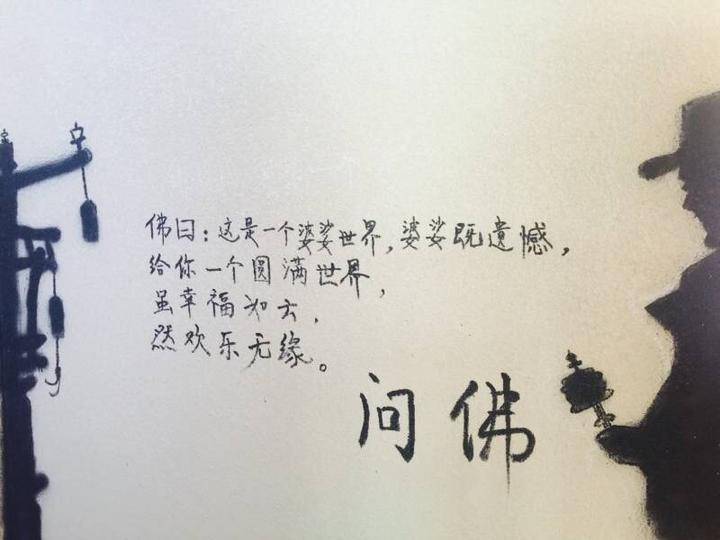 佛曰：这是一个婆娑世界，婆娑既遗憾，
给你一个圆满世界，
虽幸福
然欢乐无缘。
问佛